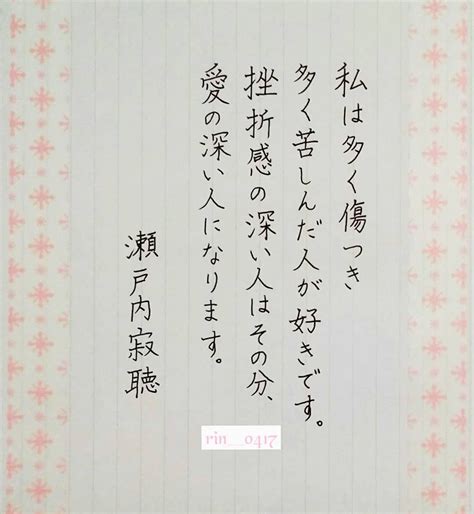 私は多く傷つき
多く苦しんだ人が好きです。
挫折感の深い人はその分、
愛の深い人になります。
瀬戸内寂聴
rin__0417